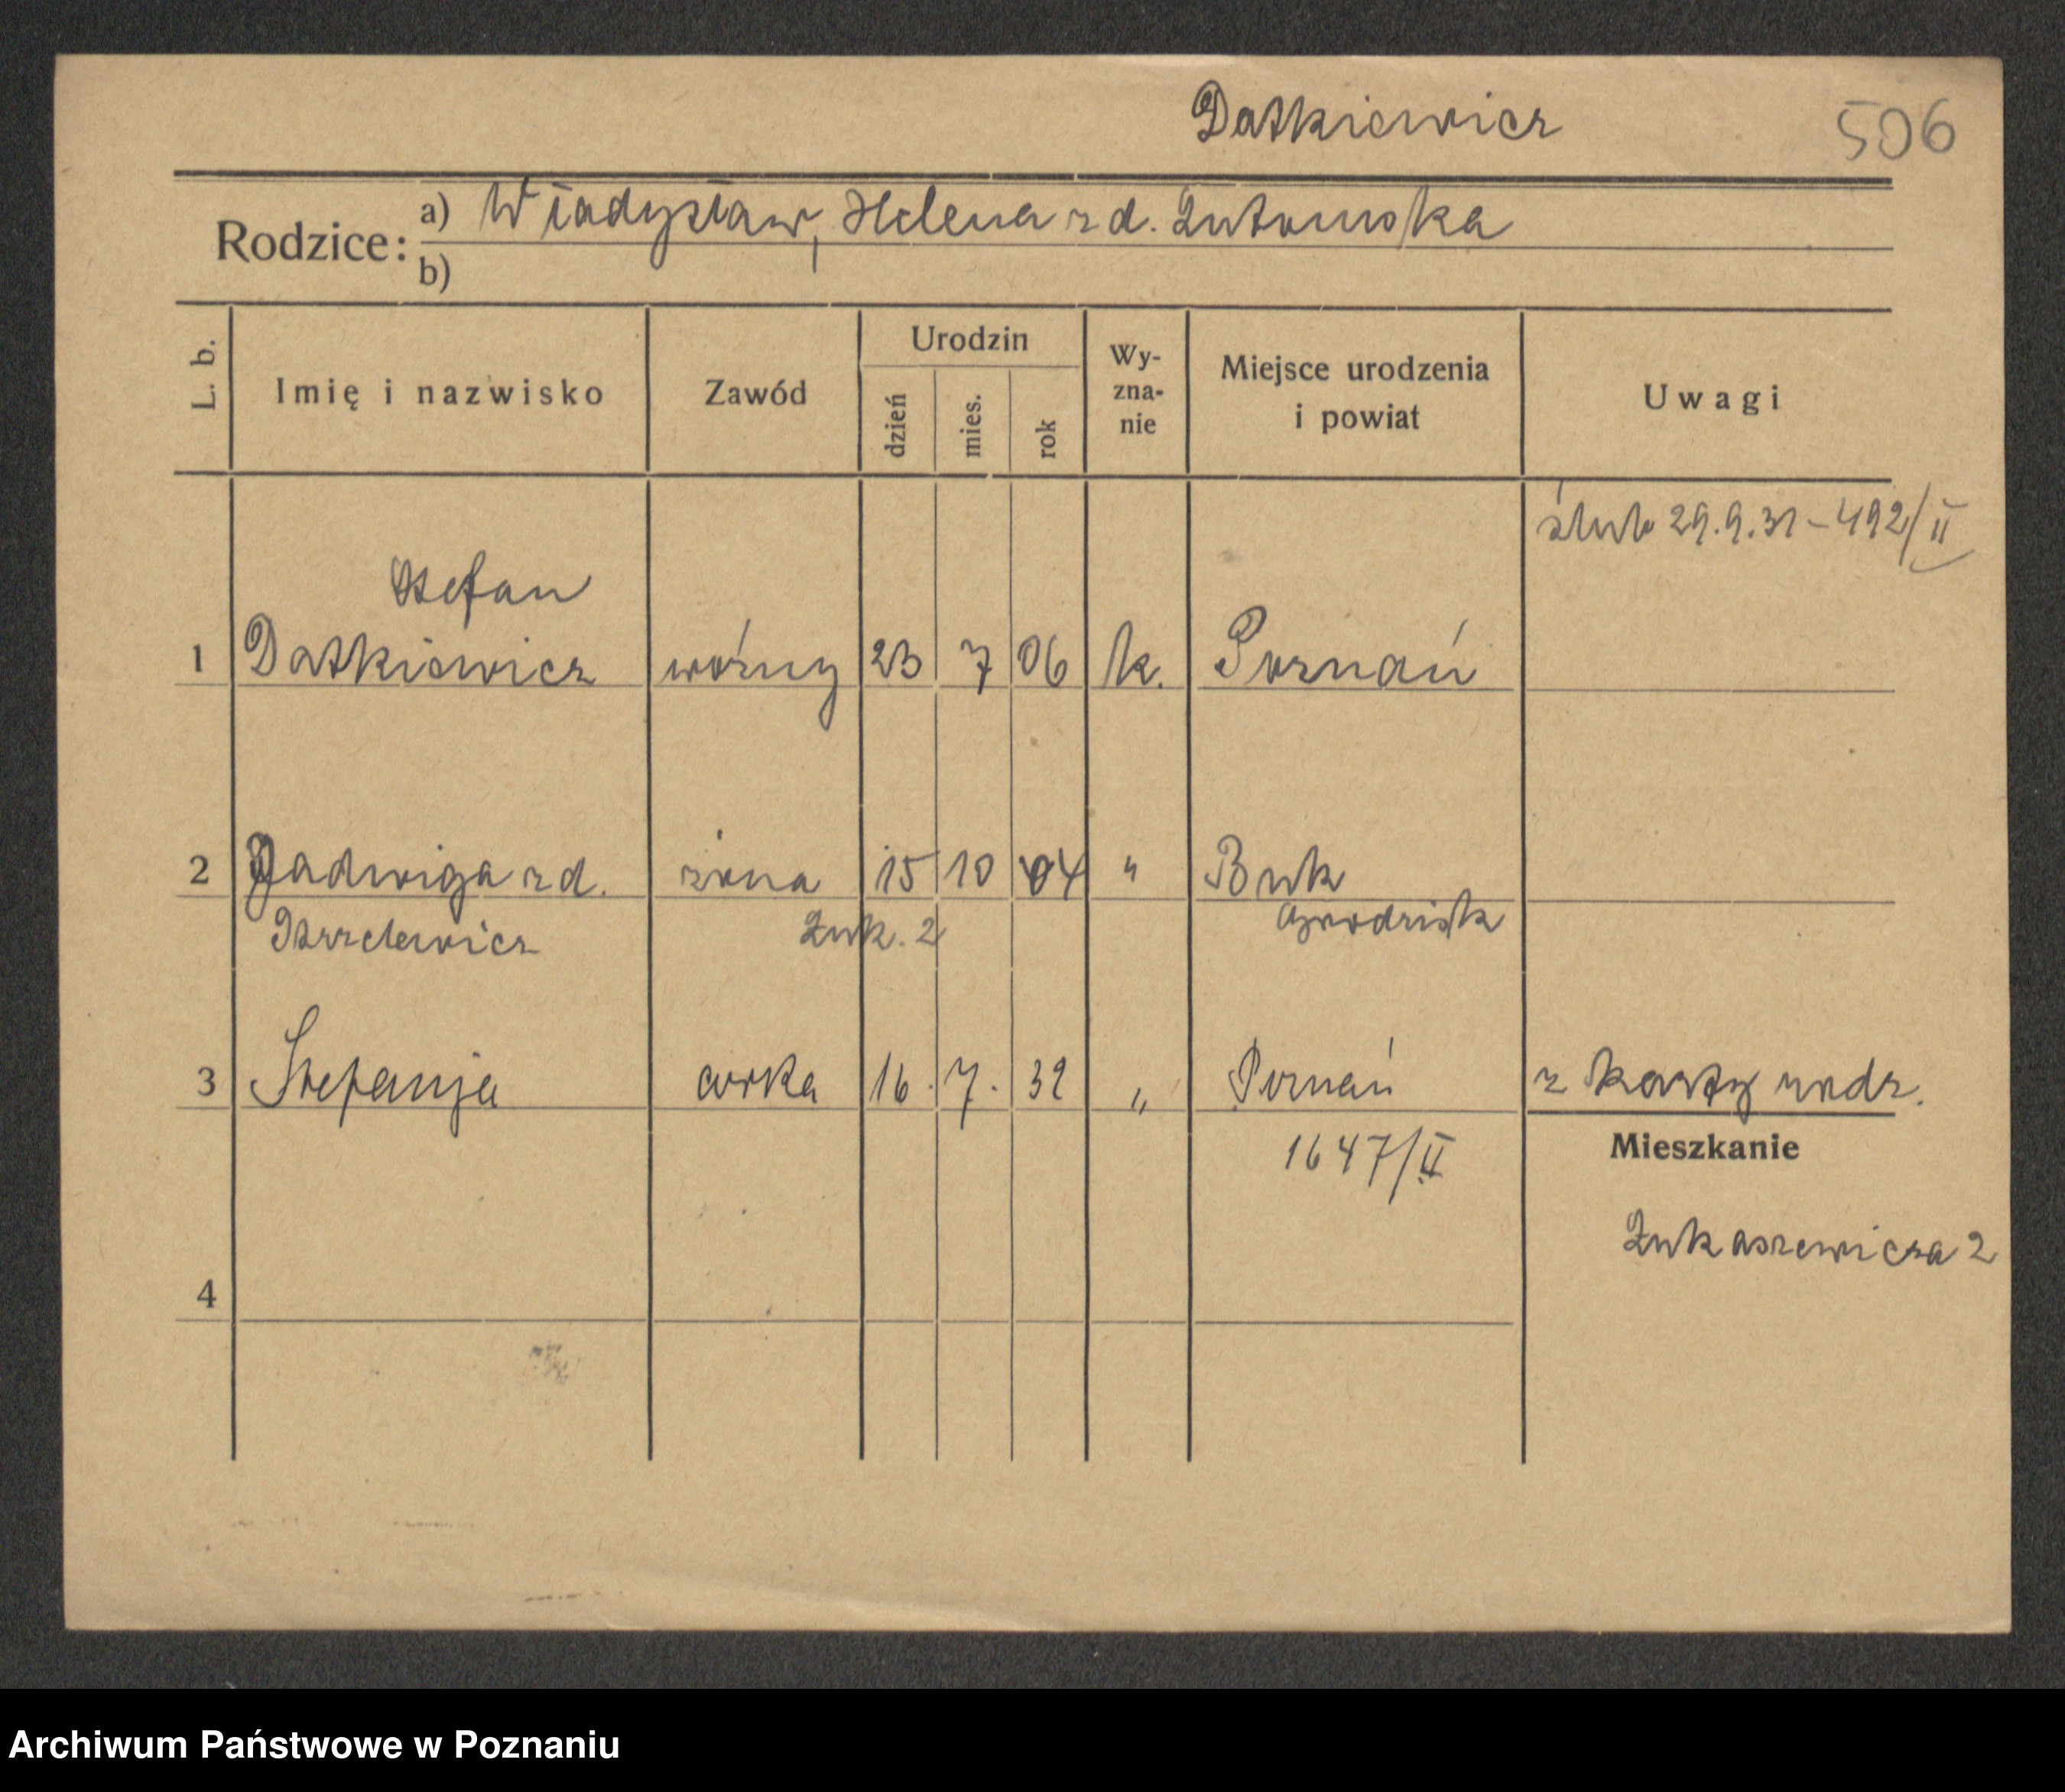 Datkiewicz 506
Rodzice: a) Władysław, Helena zd. Lutomska
b)
L. b. Imię i nazwisko Zawód Urodzin dzień mies. rok Wy-zna-nie Miejsce urodzenia i powiat Uwagi
ślub 29.9.31 – 492/II
Stefan
1 Datkiewicz woźny 23 7 06 k. Poznań
2 Jadwiga zd. żona 15 10 04 " Buk
Łuk. 2 Grodzisk
3 Stefanja córka 16. 7. 32 " Poznań z karty rodz.
1647/II
Mieszkanie
Łukaszewicza 2
4
Archiwum Państwowe w Poznaniu